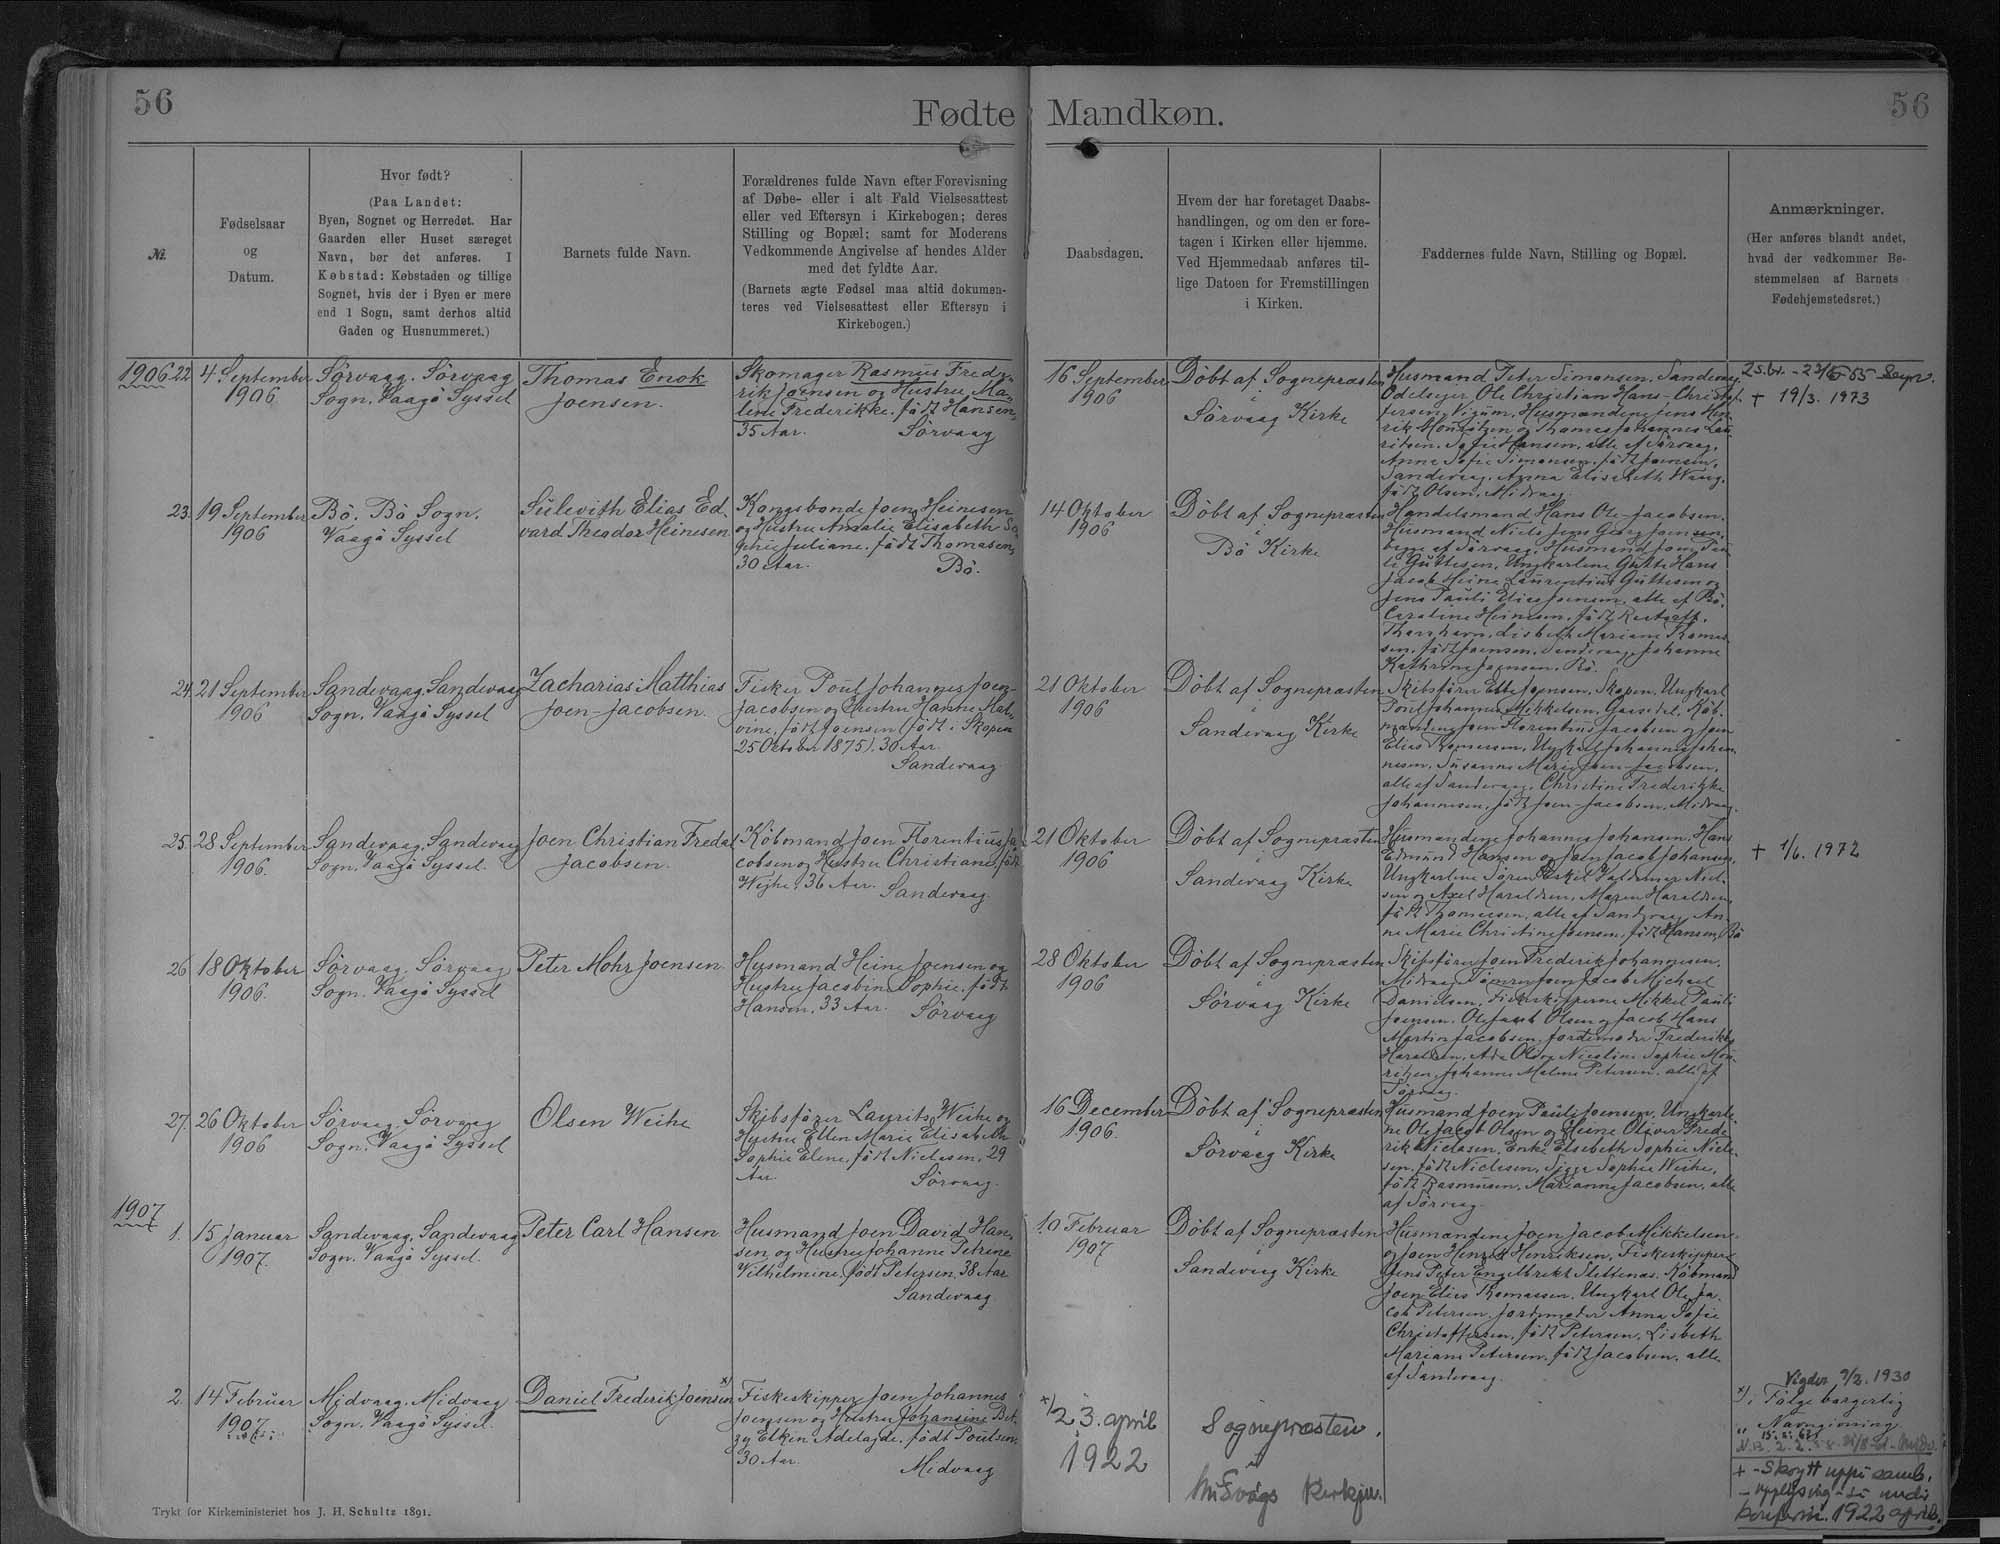 56
Fødte
Mandkøn.
56
№.
Fødselsaar
og
Datum.
Hvor født?
(Paa Landet:
Byen, Sognet og Herredet. Har
Gaarden eller Huset særeget
Navn, bør det anføres. I
Købstad: Købstaden og tillige
Sognet, hvis der i Byen er mere
end 1 Sogn, samt derhos altid
Gaden og Husnummeret.)
Barnets fulde Navn.
Forældrenes fulde Navn efter Forevisning
af Døbe- eller i alt Fald Vielsesattest
eller ved Eftersyn i Kirkebogen; deres
Stilling og Bopæl; samt for Moderens
Vedkommende Angivelse af hendes Alder
med det fyldte Aar.
(Barnets ægte Fødsel maa altid dokumen-
teres ved Vielsesattest eller Eftersyn i
Kirkebogen.)
Daabsdagen.
Hvem der har foretaget Daabs-
handlingen, og om den er fore-
tagen i Kirken eller hjemme.
Ved Hjemmedaab anføres til-
lige Datoen for Fremstillingen
i Kirken.
Faddernes fulde Navn, Stilling og Bopæl.
Anmærkninger.
(Her anføres blandt andet,
hvad der vedkommer Be-
stemmelsen af Barnets
Fødehjemstedsret.)
1906 22
4 September
1906
Sörvaag. Sörvaag
Sogn. Vaagö Syssel
Thomas Enok
Joensen.
Skomager Rasmus Frede-
rik Joensen og Hustru Ma-
lene Frederikke. født Hansen,
35 Aar. Sörvaag
16 September
1906
Döbt af Sognepræsten
i
Sörvaag Kirke
Husmand Peter Simonsen, Sandevaag.
Odelsejer Ole Christian Hans-Christof-
fersen, Vigum, Husmændene Jens Hen-
rik Mouritzen og Thomas Johannes Lau-
ritzen. Sofie Hansen, alle af Sörvaag.
Anna Sofie Simonsen. født Joensen,
Sandevaag. Anna Elisabeth Waag.
født Olsen. Midvaag.
+ 19/3. 1973
23.
19 September
1906
Bö. Bö Sogn.
Vaagö Syssel
Sülevith Elias Ed-
vard Theodor Heinesen
Kongsbonde Joen Heinesen
og Hustru Andalie Elisabeth So-
phie Juliane. født Thomasen,
30 Aar. Bö.
14 Oktober
1906
Döbt af Sognepræsten
i
Bö Kirke
Handelsmand Hans Ole-Jacobsen.
Husmand Niels Jens Georg Joensen,
begge af Sörvaag. Husmand Joen Pau-
li Guttesen, Ungkarlene Gutte Hans
Jacob Heine Laurentius Guttesen og
Jens Pauli Elias Joensen, alle af Bö.
Caroline Heinesen. født Restorff.
Thorshavn. Lisbeth Mariane Thomas-
sen. født Joensen. Sandevaag. Johanne
Kathrine Joensen. Bö.
24.
21 September
1906
Sandevaag. Sandevaag
Sogn. Vaagö Syssel
Zacharias Matthias
Joen-Jacobsen.
Fisker Poul Johannes Joen-
Jacobsen og Hustru Hanne Mal-
vine. født Joensen (født i Skopen
25 October 1875). 30 Aar.
Sandevaag
21 Oktober
1906
Döbt af Sognepræsten
i
Sandevaag Kirke
Poul Johannes Mikkelsen, Gaasedal. Köb-
mændene Joen Florentius Jacobsen og Joen
Elias Thomassen. Ungkarl Johannes Johan-
nesen, Susanne Marie Joen-Jacobsen.
alle af Sandevaag. Christine Frederikke
Johannesen, født Joen-Jacobsen. Midvaag.
25.
28 September
1906.
Sandevaag. Sandevaag
Sogn. Vaagö Syssel.
Joen Christian Fredal
Jacobsen.
Köbmand Joen Florentius Ja-
cobsen og Hustru Christiane, født
Weihe, 36 Aar. Sandevaag
21 Oktober
1906
Döbt af Sognepræsten
i
Sandevaag Kirke
Husmændene Johannes Johansen, Hans
Edmund Hansen og Joen Jacob Johansen,
Ungkarlene Sören Eskil Valdemar Niel-
sen og Axel Haraldsen, Maren Haraldsen
født Thomassen, alle af Sandevaag. An-
ne Marie Christine Joensen, født Hansen, Bö
+ 1/6. 1972
26
18 Oktober
1906.
Sörvaag. Sörvaag
Sogn. Vaagö Syssel
Peter Mohr Joensen
Husmand Heine Joensen og
Hustru Jacobine Sophie. født
Hansen, 33 Aar. Sörvaag
28 Oktober
1906
Döbt af Sognepræsten
i
Sörvaag Kirke
Skibsförer Joen Frederik Johannesen.
Midvaag. Tömrer Joen Jacob Michael
Danielsen, Fiskeskipperne Mikkel Pauli
Joensen. Ole Jacob Olsen og Jacob Hans
Martin Jacobsen. Jordemoder Frederikke
Haraldsen, Ada Olsen, Nicoline Sophie Mou-
ritzen. Johanne Malene Petersen. alle af
Sörvaag.
27.
26 Oktober
1906
Sörvaag. Sörvaag
Sogn. Vaagö Syssel
Olsen Weihe
Skibsförer Laurits Weihe og
Hustru Ellen Marie Elisabeth
Sophie Elene, født Niclasen, 29
Aar. Sörvaag.
16 December
1906.
Döbt af Sognepræsten
i
Sörvaag Kirke
Husmand Joen Pauli Joensen, Ungkarle-
ne Ole Jacob Olsen og Heine Oliver Frede-
rik Niclasen, Enke Elsebeth Sophie Nicla-
sen. født Niclesen, Sigga Sophie Weihe,
født Rasmusen. Marianne Jacobsen. alle
af Sörvaag.
1907
1.
15 Januar
1907.
Sandevaag. Sandevaag
Sogn. Vaagö Syssel.
Peter Carl Hansen
Husmand Joen David Han-
sen og Hustru Johanne Petrine
Wilhelmine, født Petersen, 38 Aar
Sandevaag
10 Februar
1907
Döbt af Sognepræsten
i
Sandevaag Kirke
Husmændene Joen Jacob Mikkelsen
og Joen Henrik Henriksen, Fiskeskipper
Jens Peter Engelbrekt Slettenas. Köbmand
Joen Elias Thomassen. Ungkarl Ole Ja-
cob Petersen. Jordemoder Anna Sofie
Christoffersen, født Petersen. Lisbeth
Mariane Petersen. født Jacobsen. alle
af Sandevaag.
2.
14 Februar
1907.
Midvaag. Midvaag
Sogn. Vaagö Syssel.
Daniel Frederik Joensen x)
Fiskeskipper Joen Johannes
Joensen og Hustru Johansine Bet-
zy Elkin Adelajde. født Poulsen.
30 Aar. Midvaag
x)
23. april
1922
Sognepræsten,
í
Miðvágs Kirkju.
Vigdur 9/2. 1930
x) i Følge borgerlig
Navngivning
1922 april.
Trykt for Kirkeministeriet hos J. H. Schultz 1891.